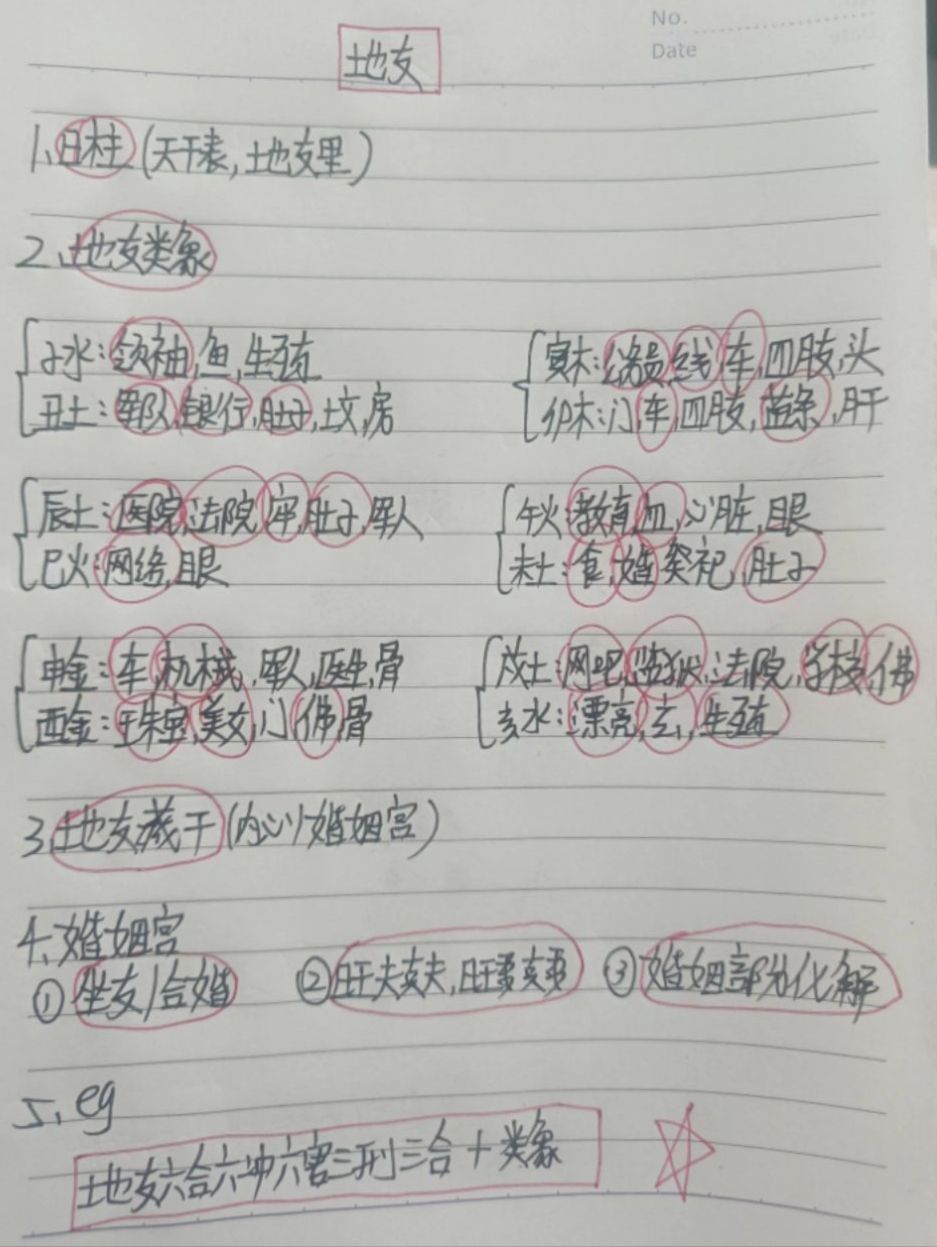 No.
Date
地支
1、日柱(天干表,土地支里)
2、地支类象
子水:领袖,鱼,生殖
寅木:公务员,线,车,四肢,头
丑土:军队,银行,肚子,土坟,房
卯木:门,车,四肢,蓝条,肝
辰土:医院,法院,牢,肚子,军人
午火:教育,血,心脏,眼
巳火:网络,眼
未土:食,婚,祭祀,肚子
申金:车,机械,军人,医生,骨
戌土:网吧,监狱,法院,学校,佛
酉金:珠宝,美女,门,佛,骨
亥水:漂亮,玄,生殖
3、地支藏干(内心/婚姻宫)
4、婚姻宫
①坐支/合婚
②旺夫克夫,旺妻克妻
③婚姻部分化解
5、eg
地支六合六冲六害三刑三合+类象